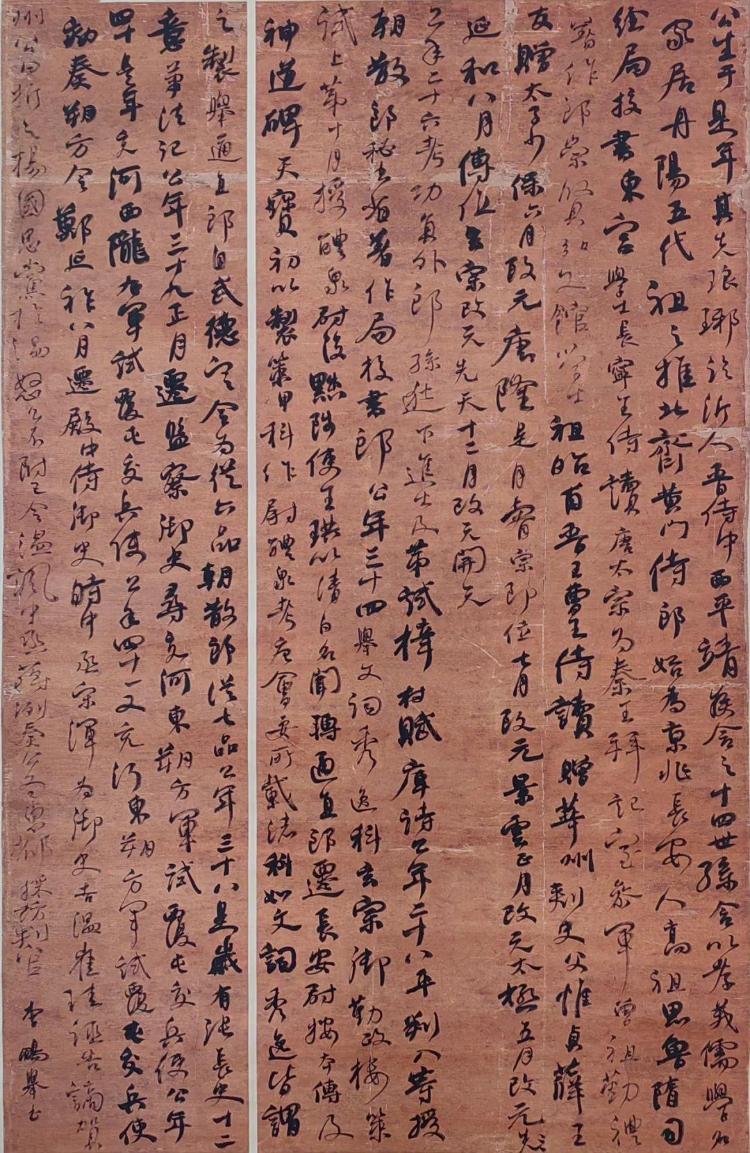 公生于是年其先琅琊临沂人晋侍中西平靖侯含之十四世孫含以孝義儒學名
家居丹陽五代祖之推北齊黄门侍郎始為京兆長安人高祖思魯隋司
经局校書東宫學士長寧王侍讀唐太宗為秦王拜記室参軍曾祖勤禮
著作郎崇賢弘文館學士祖昭甫晋王曹王侍讀贈華州刺史父惟貞薛王
友贈太子少保六月改元唐隆是月睿宗即位七月改元景雲正月改元太極五月改元
延和八月傳位玄宗改元先天十二月改元開元
公年二十六考功員外郎孫逖下進士及第試梓材賦庫詩公年二十八平判入等授
朝散郎秘書省著作局校書郎公年三十四舉文词秀逸科玄宗御勤政樓策
試上第十月授醴泉尉後黜陟使王珙以清白名聞轉通直郎遷長安尉按本傳及
神道碑天寶初以製策甲科作尉醴泉考唐會要所載諸科如文詞秀逸皆謂
之製舉通直郎自武德定令為從六品朝散郎從七品公年三十八是歲有張長史十二
意筆法記公年三十九正月遷監察御史尋充河東朔方軍試覆屯交兵使公年
四十是年充河西隴右軍試覆屯交兵使公年四十一又充河東朔方軍試覆屯交兵使
劾奏朔方令鄭延祚八月遷殿中侍御史時中丞宋渾為御史吉温崔珪誣告謫賀
州公曰楊國忠黨怒公不附己令温諷中丞蒋冽奏公為東都採訪判官 李鵬舉书